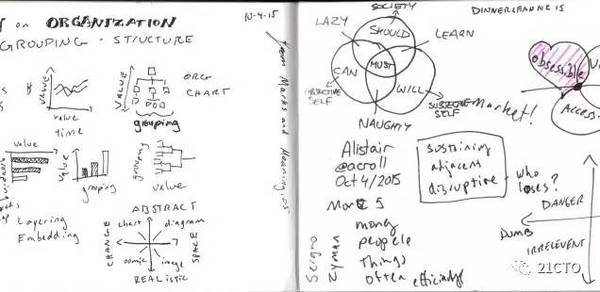 on ORGANIZATION
GROUPING · STRUCTURE
10-4-15
from Marks and Meaning, 05
VALUE
value
time
VALUE
ORG
CHART
grouping
value
value
grouping
grouping
value
Layering
Embedding
ABSTRACT
chart
diagram
CHANGE
SPACE
comic
image
REALISTIC
SOCIETY
LAZY
SHOULD
LEARN
CAN
MUST
WILL
OBJECTIVE
SELF
SUBJECTIVE
SELF
NAUGHTY
Market!
DINNERLEARNE 15
obsessible
Access
Alistair
@acroll
Oct 4/2015
sustaining
adjacent
disruptive
who
loses?
DANGER
DUMB
IRRELEVENT
money
people
things
often
Sergio
Nyman
21CTO